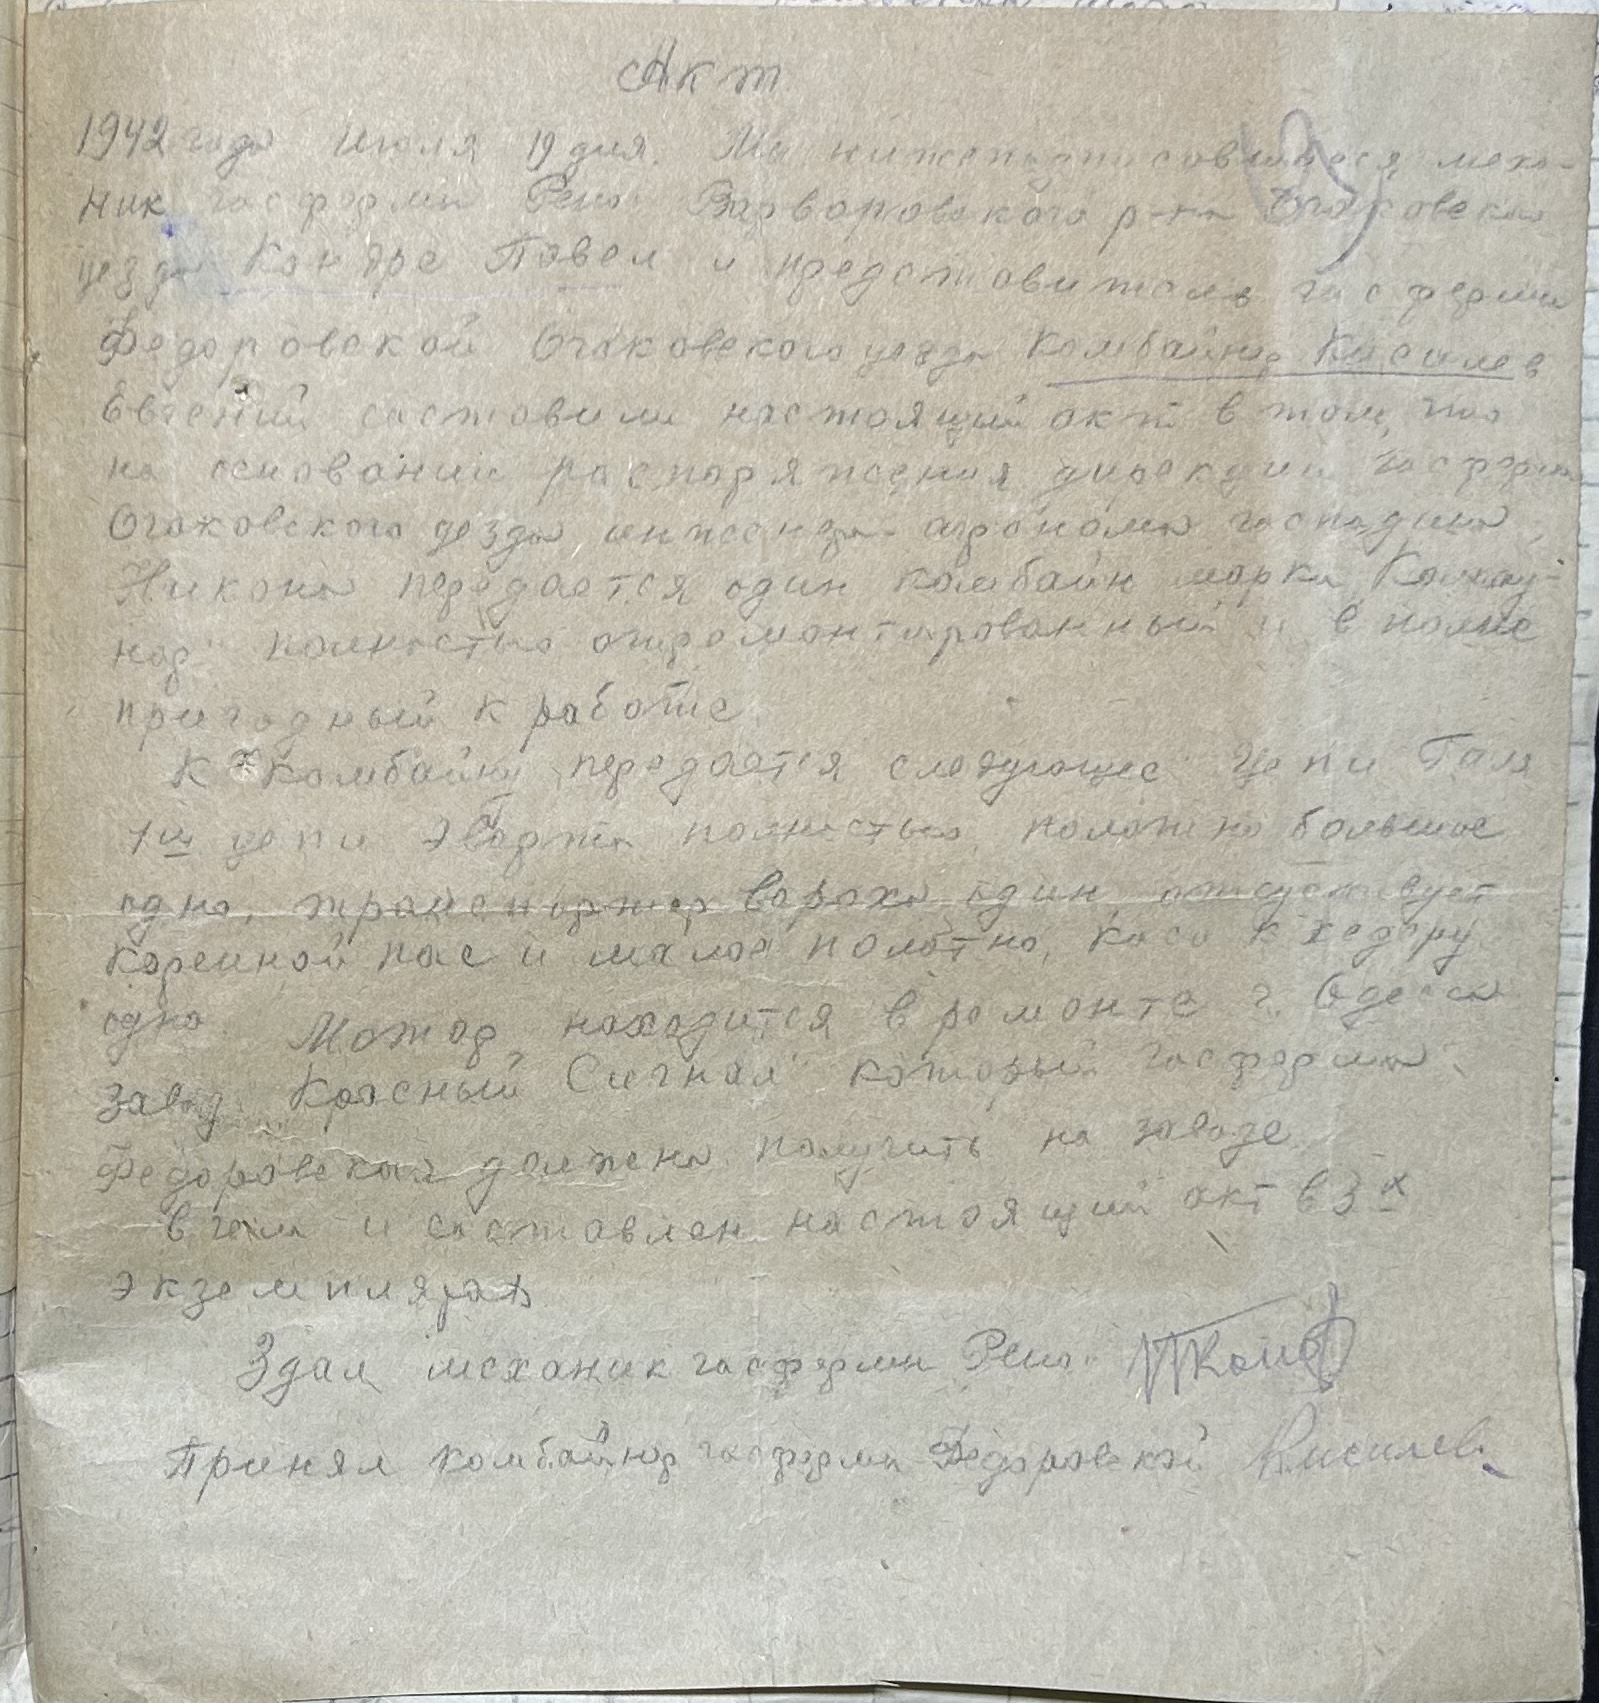 Акт
1942 года Июля 19 дня. Мы нижеподписавшиеся меха-
ник госфермы Рено Варваровского р-на Очаковского
уезда Конаре Павел и представитель госфермы
Федоровской Очаковского уезда комбайнер Кисилев
Евгений составили настоящий акт в том, что
на основании распоряжения дирекции госферм
Очаковского уезда инженера-агронома господина
Никона передается один комбайн марки Комму-
нар полностью отремонтированный и вполне
пригодный к работе.
К комбайну передается следующее цепи Галя
цепи Эварта полностью, полотно большое
одно, транспортер вороха один отсутствует
коренной пас и малое полотно, коса к хедеру
одна Мотор находится в ремонте г. Одесса
завод Красный Сигнал который госферма
Федоровская должна получить на заводе
в чем и составлен настоящий акт в 3х
экземплярах
Здал механик госфермы Рено
Принял комбайнер госфермы Федоровской Кисилев